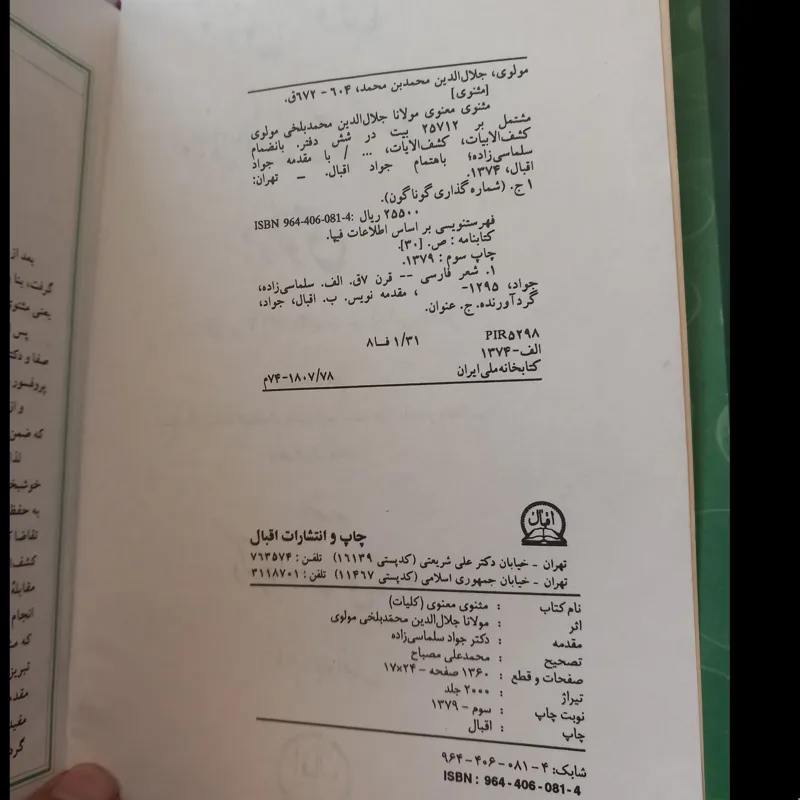 مولوی، جلال‌الدین محمدبن محمد، ۶۰۴ - ۶۷۲ق.
[مثنوی]
مثنوی معنوی مولانا جلال‌الدین محمدبلخی مولوی
مشتمل بر ۲۵۷۱۲ بیت در شش دفتر. بانضمام
کشف‌الابیات، کشف‌الآیات، ... / با مقدمه جواد
سلماسی‌زاده؛ باهتمام جواد اقبال. _ تهران:
اقبال، ۱۳۷۴.
۱ ج. (شماره گذاری گوناگون).
۲۵۵۰۰ ریال :ISBN 964-406-081-4
فهرستنویسی بر اساس اطلاعات فیپا.
کتابنامه : ص. [۳۰].
چاپ سوم : ۱۳۷۹.
۱. شعر فارسی -- قرن ۷ق. الف. سلماسی‌زاده،
جواد، ۱۲۹۵- ، مقدمه نویس. ب. اقبال، جواد،
گردآورنده. ج. عنوان.
۸فا۱/۳۱ PIR۵۲۹۸
الف-۱۳۷۴
کتابخانه ملی ایران ۷۴-۱۸۰۷/۷۸م
اقبال
چاپ و انتشارات اقبال
تهران - خیابان دکتر علی شریعتی (کدپستی ۱۶۱۳۹) تلفن : ۷۶۳۵۷۴
تهران - خیابان جمهوری اسلامی (کدپستی ۱۱۴۶۷) تلفن : ۳۱۱۸۷۰۱
نام کتاب : مثنوی معنوی (کلیات)
اثر : مولانا جلال‌الدین محمّدبلخی مولوی
مقدمه : دکتر جواد سلماسی‌زاده
تصحیح : محمدعلی مصباح
صفحات و قطع : ۱۳۶۰ صفحه - ۲۴×۱۷
تیراژ : ۲۰۰۰ جلد
نوبت چاپ : سوم - ۱۳۷۹
چاپ : اقبال
شابک: ۴-۰۸۱-۴۰۶-۹۶۴
ISBN : 964-406-081-4
بعد از
گرفت، بنا
یعنی مثنوی
پس
صفا و دکت
پروفسور
و از
که ضمن
لذا
خوشبخ
به حفظ
تقاضا
کشف‌ا
مقابله
انجام
که
تبریز
مقد
مفید
گرد